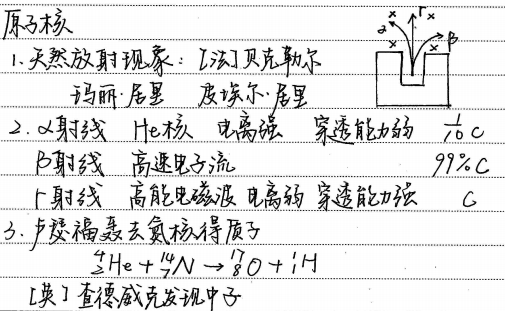 原子核
1.天然放射现象:[法]贝克勒尔
玛丽·居里 皮埃尔·居里
α γ β
× × × ×
2.α射线 He核 电离强 穿透能力弱 1/10 C
β射线 高速电子流 99%C
γ射线 高能电磁波 电离弱 穿透能力强 C
3.卢瑟福轰击氮核得质子
⁴₂He + ¹⁴₇N → ¹⁷₈O + ¹₁H
[英]查德威克发现中子